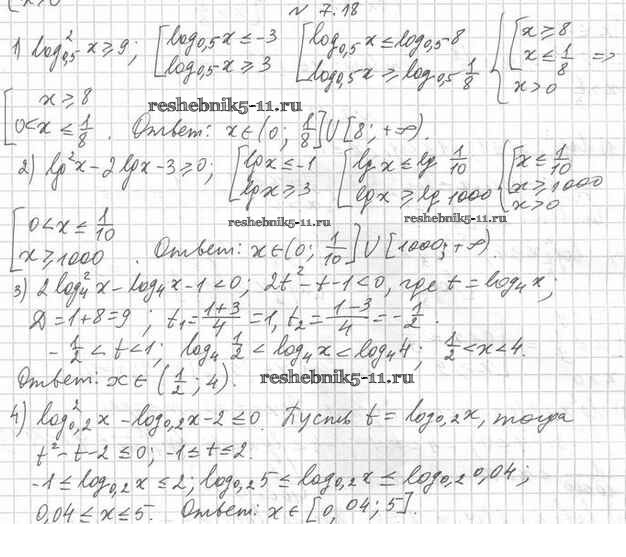 № 7.18
1) log²₀,₅ x ≥ 9; [log₀,₅ x ≤ -3 [log₀,₅ x ≤ log₀,₅ 8 { [x ≥ 8
log₀,₅ x ≥ 3 log₀,₅ x ≥ log₀,₅ 1/8 x ≤ 1/8 =>
x > 0
[x ≥ 8
reshebnik5-11.ru
0 < x ≤ 1/8. Ответ: x ∈ (0; 1/8] ∪ [8; +∞).
2) lg²x - 2 lg x - 3 ≥ 0; [lg x ≤ -1 [lg x ≤ lg 1/10 { [x ≤ 1/10
lg x ≥ 3 lg x ≥ lg 1000 x ≥ 1000
x > 0
reshebnik5-11.ru reshebnik5-11.ru
[0 < x ≤ 1/10
x ≥ 1000. Ответ: x ∈ (0; 1/10] ∪ [1000; +∞)
3) 2 log²₄ x - log₄ x - 1 < 0; 2t² - t - 1 < 0, где t = log₄ x;
Д = 1 + 8 = 9; t₁ = (1+3)/4 = 1, t₂ = (1-3)/4 = -1/2.
-1/2 < t < 1; log₄ 1/2 < log₄ x < log₄ 4; 1/2 < x < 4.
Ответ: x ∈ (1/2; 4).
reshebnik5-11.ru
4) log²₀,₂ x - log₀,₂ x - 2 ≤ 0. Пусть t = log₀,₂ x, тогда
t² - t - 2 ≤ 0; -1 ≤ t ≤ 2.
-1 ≤ log₀,₂ x ≤ 2; log₀,₂ 5 ≤ log₀,₂ x ≤ log₀,₂ 0,04;
0,04 ≤ x ≤ 5. Ответ: x ∈ [0,04; 5].